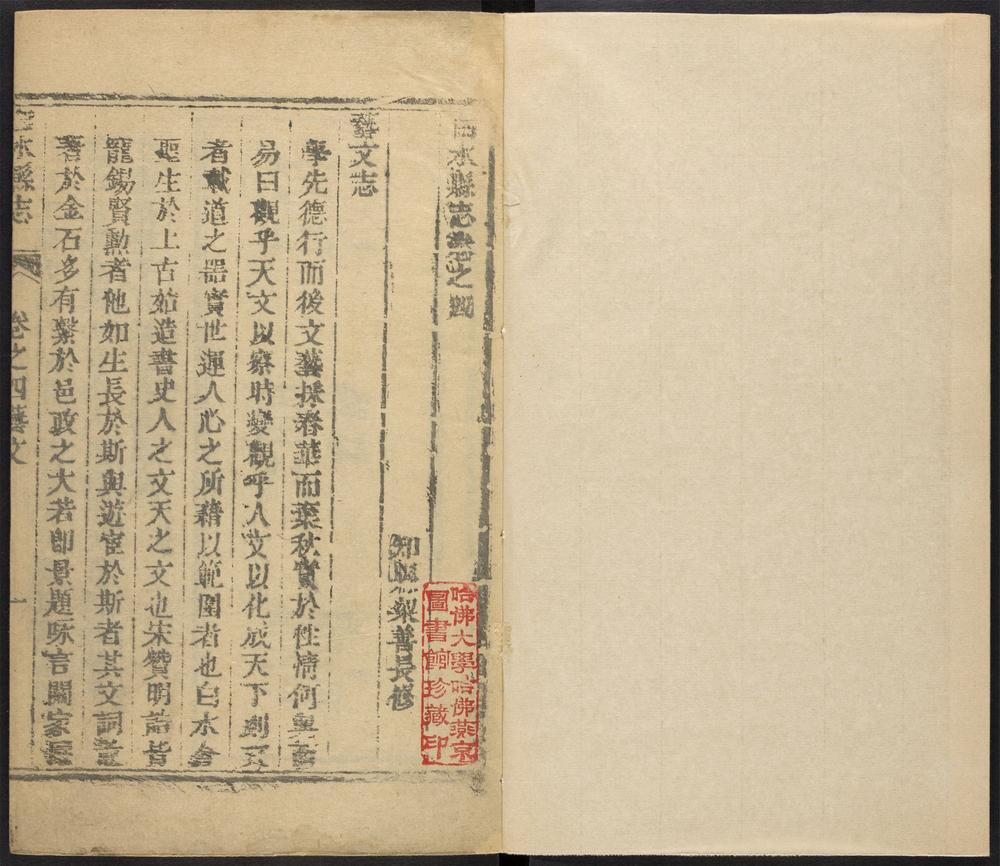 白水縣志卷之四
知縣梁善長修
藝文志
學先德行而後文藝採春華而棄秋實於性情何與
易曰觀乎天文以察時變觀乎人文以化成天下則文
者載道之器實世運人心之所藉以範圍者也白水倉
聖生於上古始造書史人之文天之文也宋贊明誥皆
寵錫賢勲者他如生長於斯與遊宦於斯者其文詞
著於金石多有繫於邑政之大若卽景題咏言關家
白水縣志
卷之四藝文
一
哈佛大學哈佛燕京
圖書館珍藏印